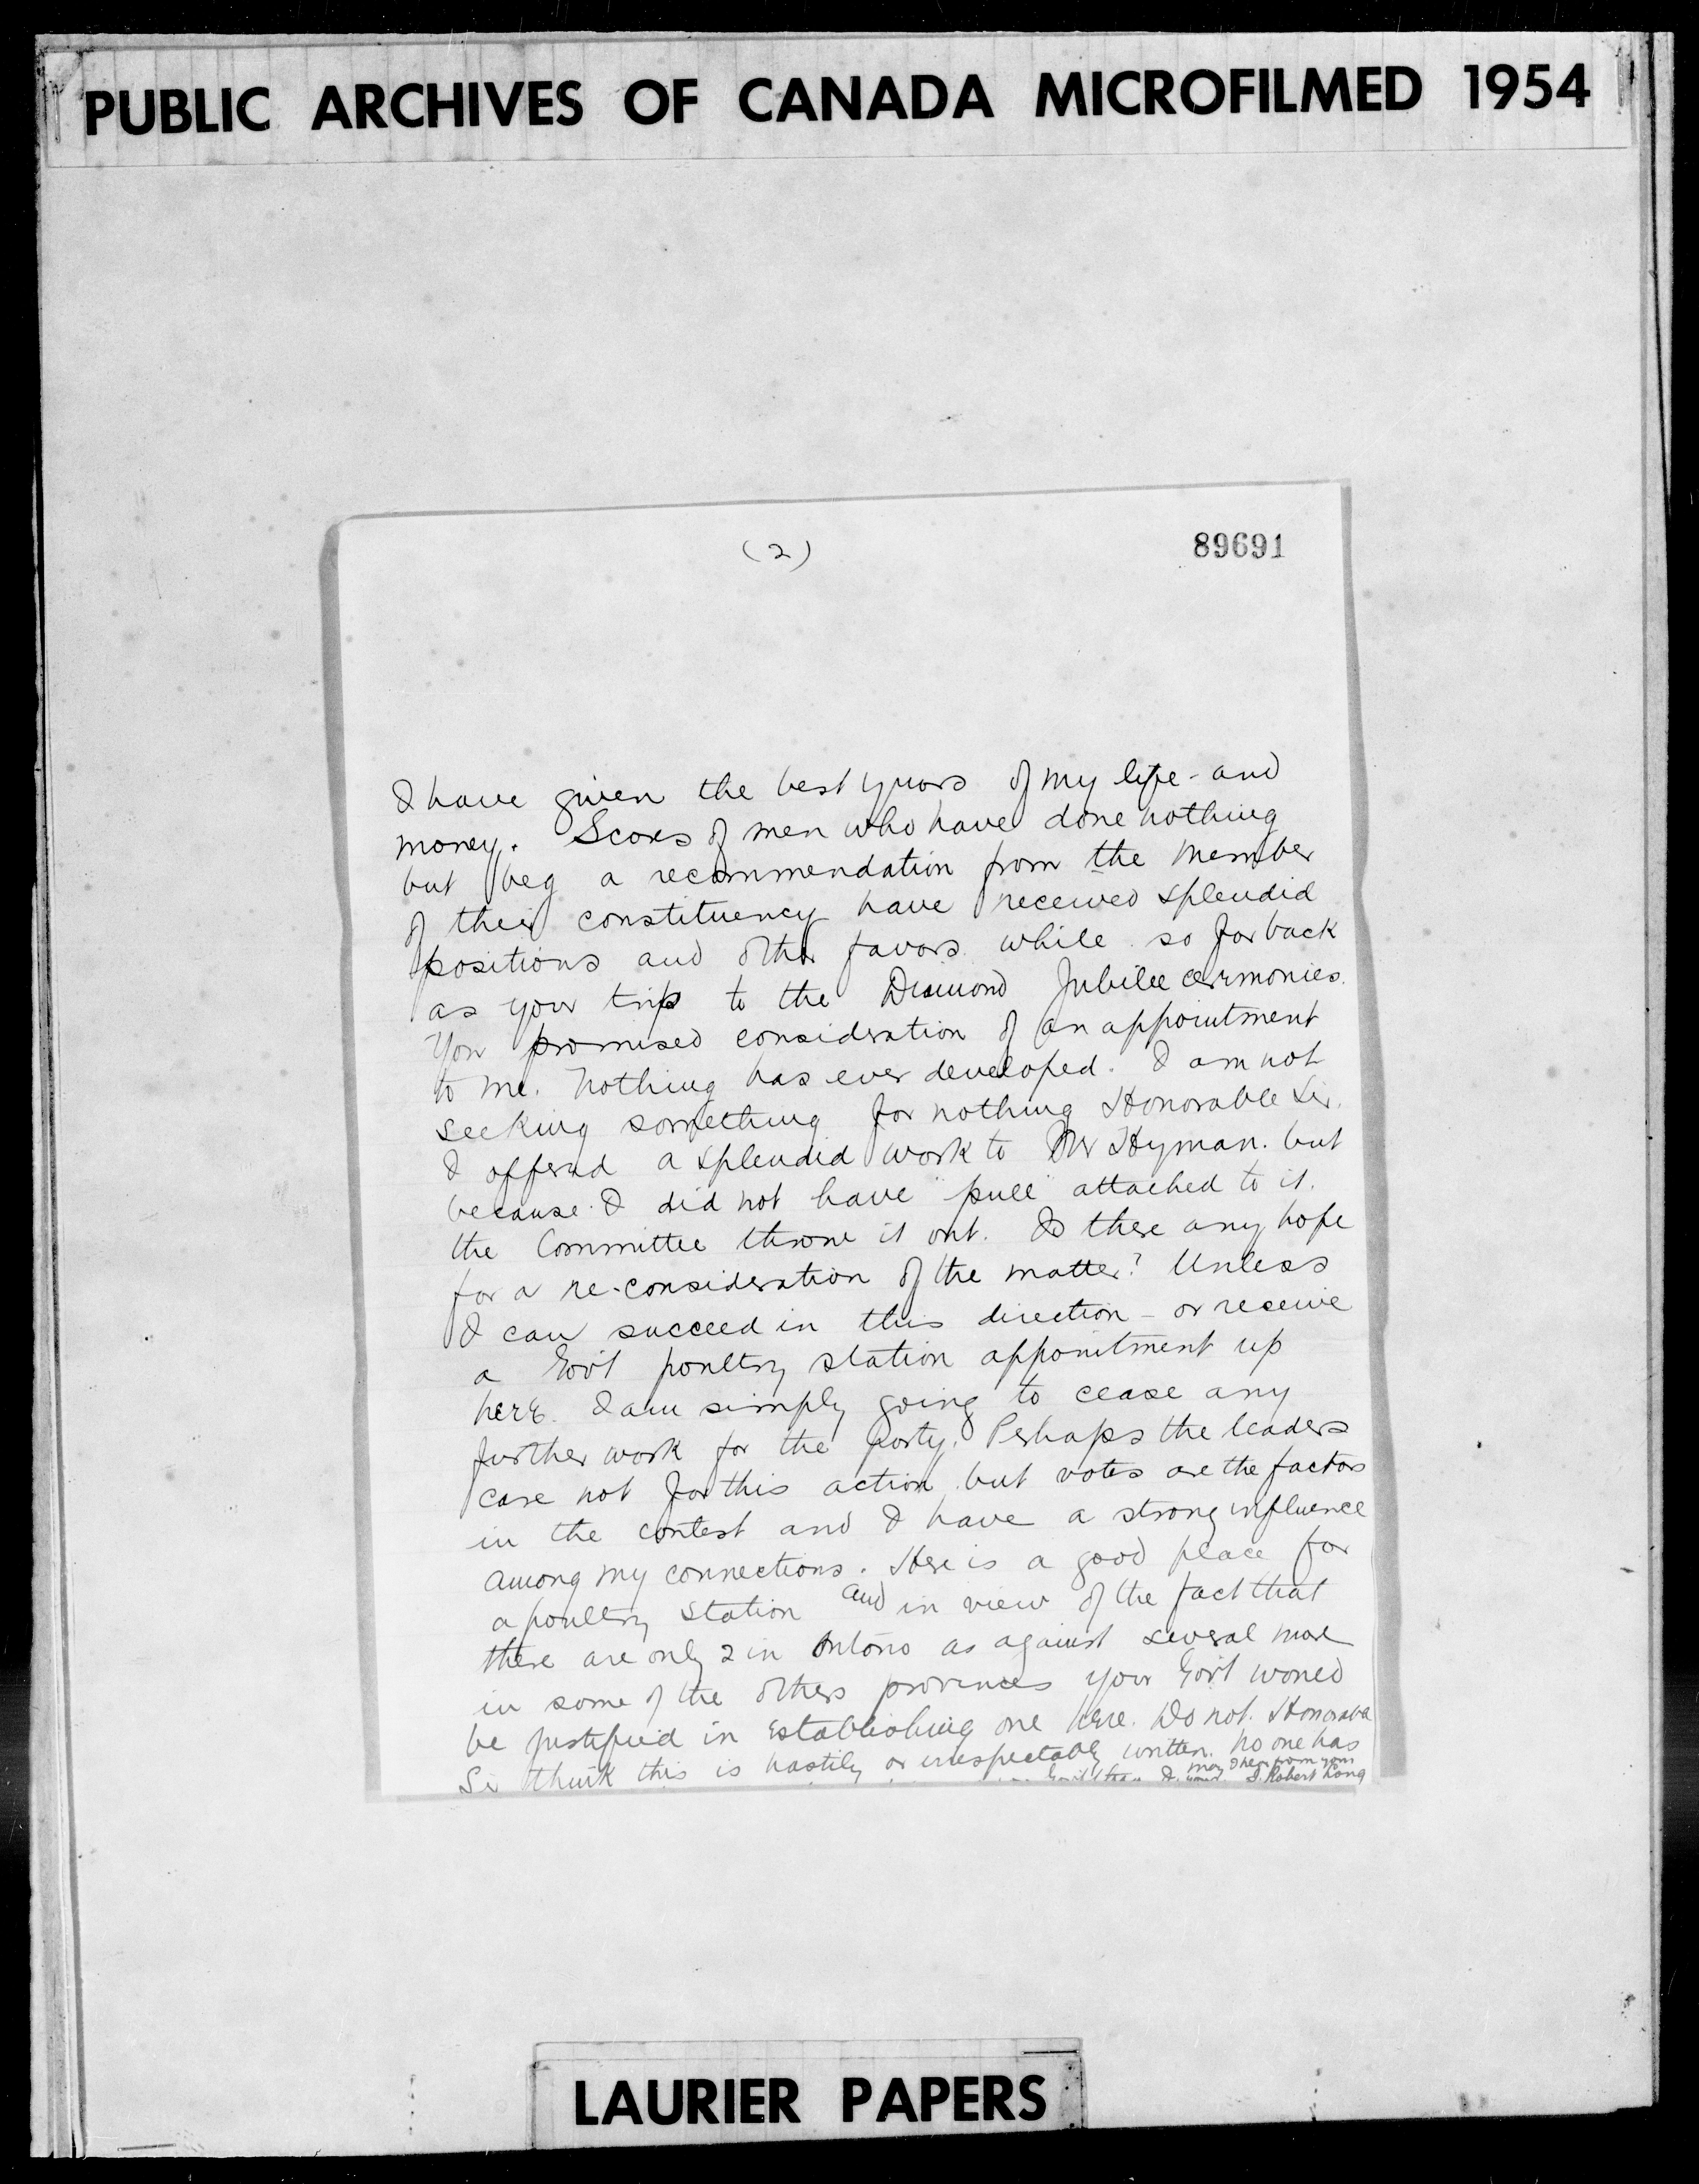 PUBLIC ARCHIVES OF CANADA MICROFILMED 1954
(2)
89691
I have given the best years of my life - and
money. Scores of men who have done nothing
but beg a recommendation from the Member
of their constituency have received splendid
positions and other favors while so far back
as your trip to the Diamond Jubilee ceremonies.
You promised consideration of an appointment
to me. Nothing has ever developed. I am not
seeking something for nothing Honorable Sir.
I offered a splendid work to Mr Hyman. but
because I did not have "pull" attached to it.
the Committee throw it out. Is there any hope
for a re-consideration of the matter? Unless
I can succeed in this direction - or receive
a Gov't poultry station appointment up
here. I am simply going to cease any
further work for the party. Perhaps the leaders
care not for this action but votes are the factors
in the contest and I have a strong influence
among my connections. Here is a good place for
a poultry station and in view of the fact that
there are only 2 in Ontario as against several more
in some of the others provinces your Gov't would
be justified in establishing one here. Do not. Honorable
Sir think this is hastily or irrespectably written. No one has
may I hear from you
Gov't than I. J. Robert Long
LAURIER PAPERS